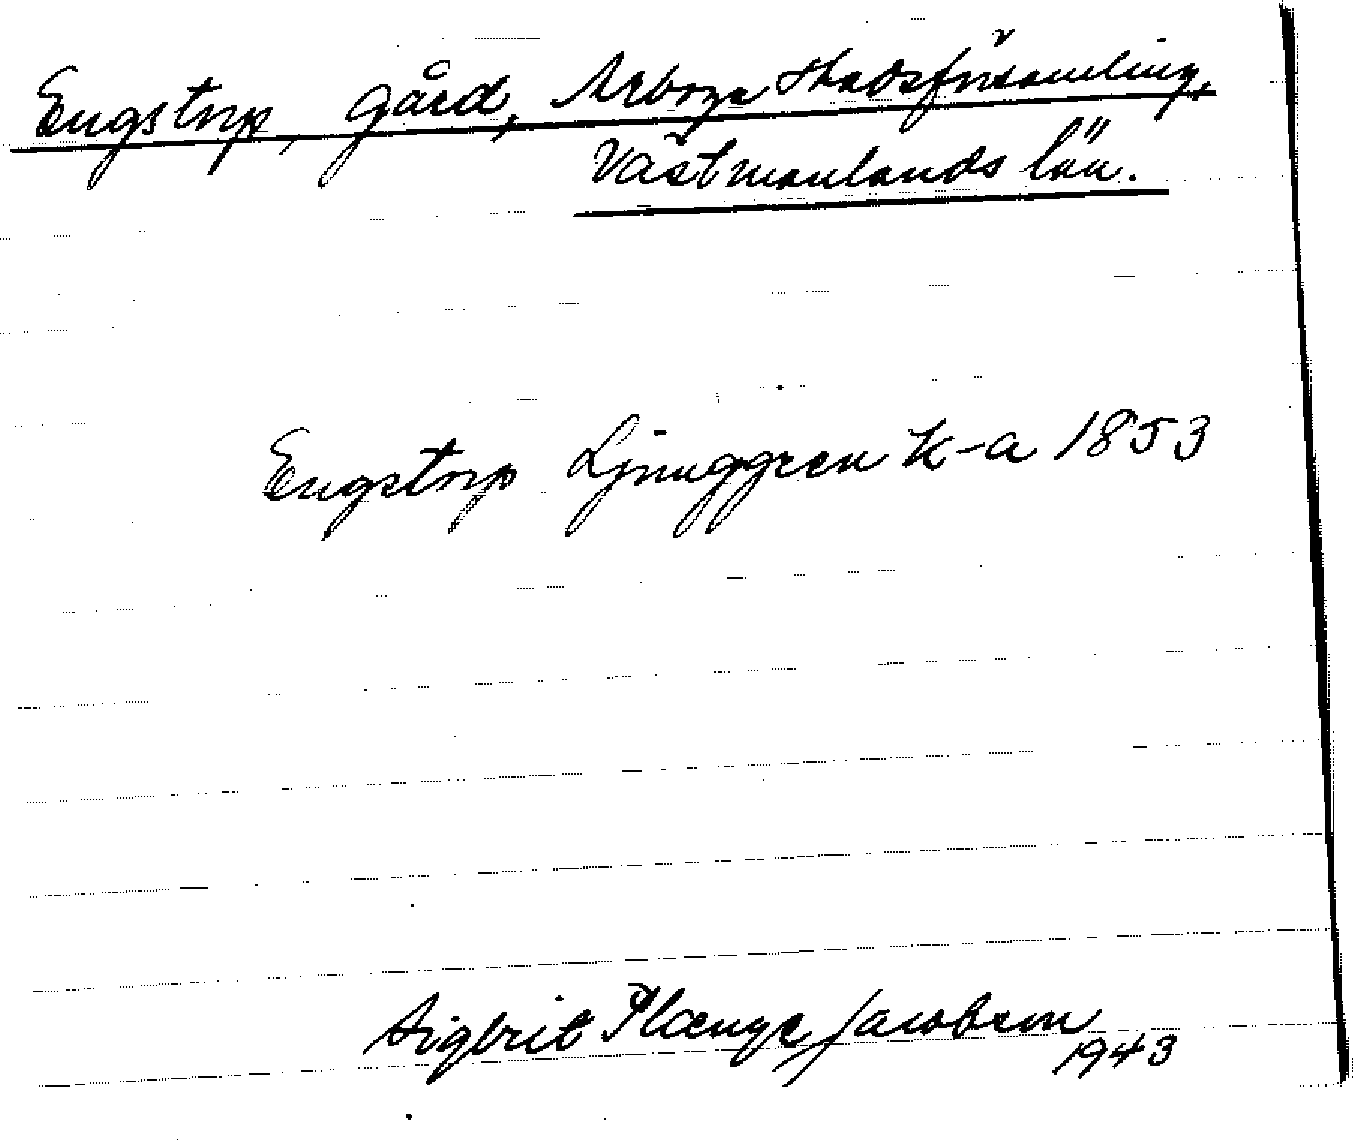 Engstorp, gård, Arboga stadsförsamling,
Västmanlands län.
Engstorp Ljunggren K-a 1853
Sigbrit Plænge Jacobson
1943